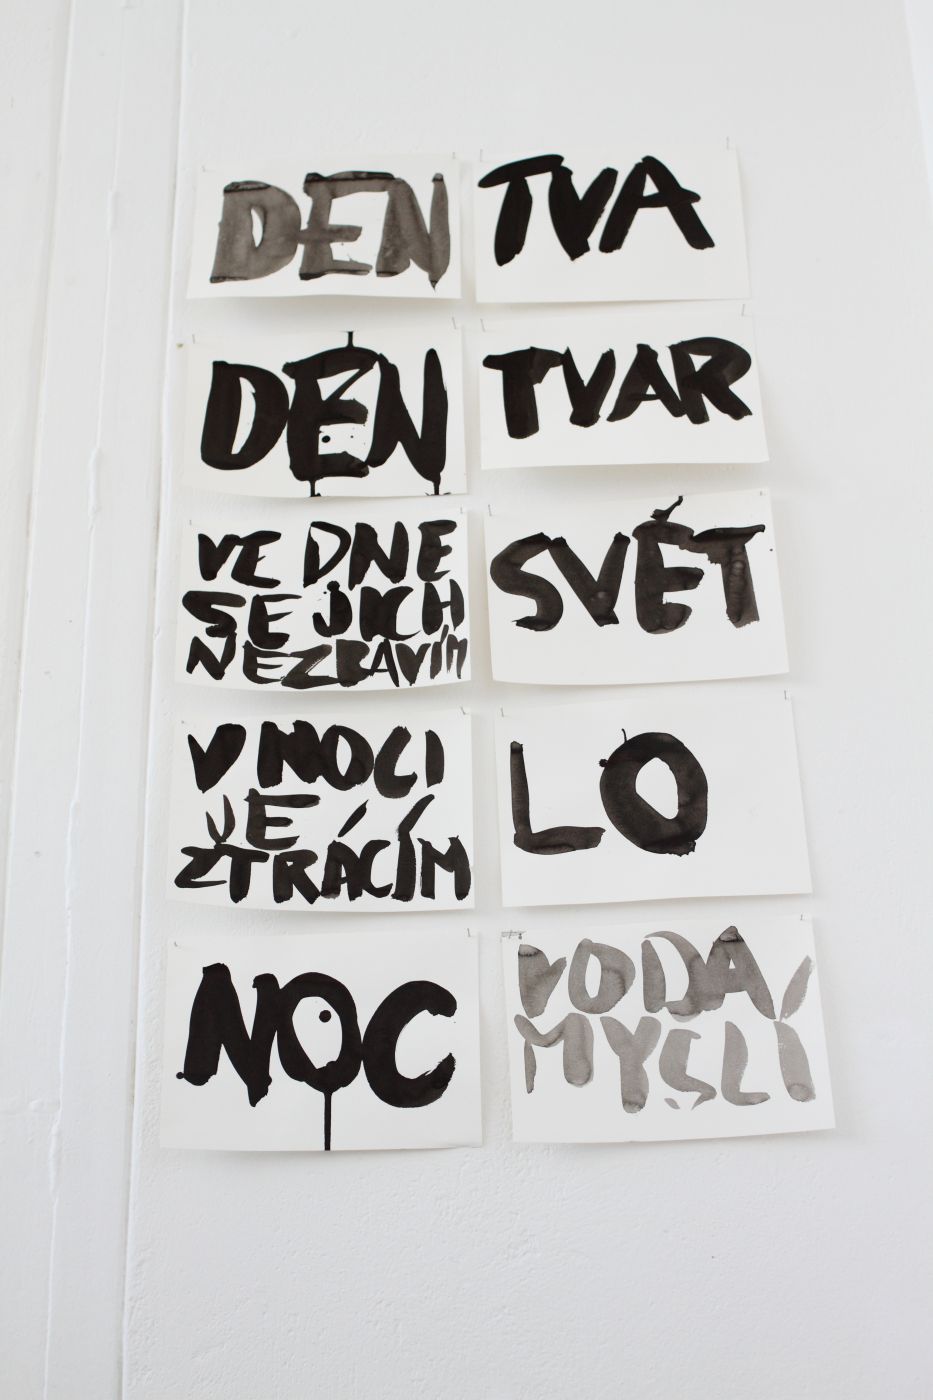 DEN
DEN
VE DNE
SE JICH
NEZBAVÍM
V NOCI
JE
ZTRÁCÍM
NOC
TVA
TVAR
SVĚT
LO
VODA
MYSLÍ